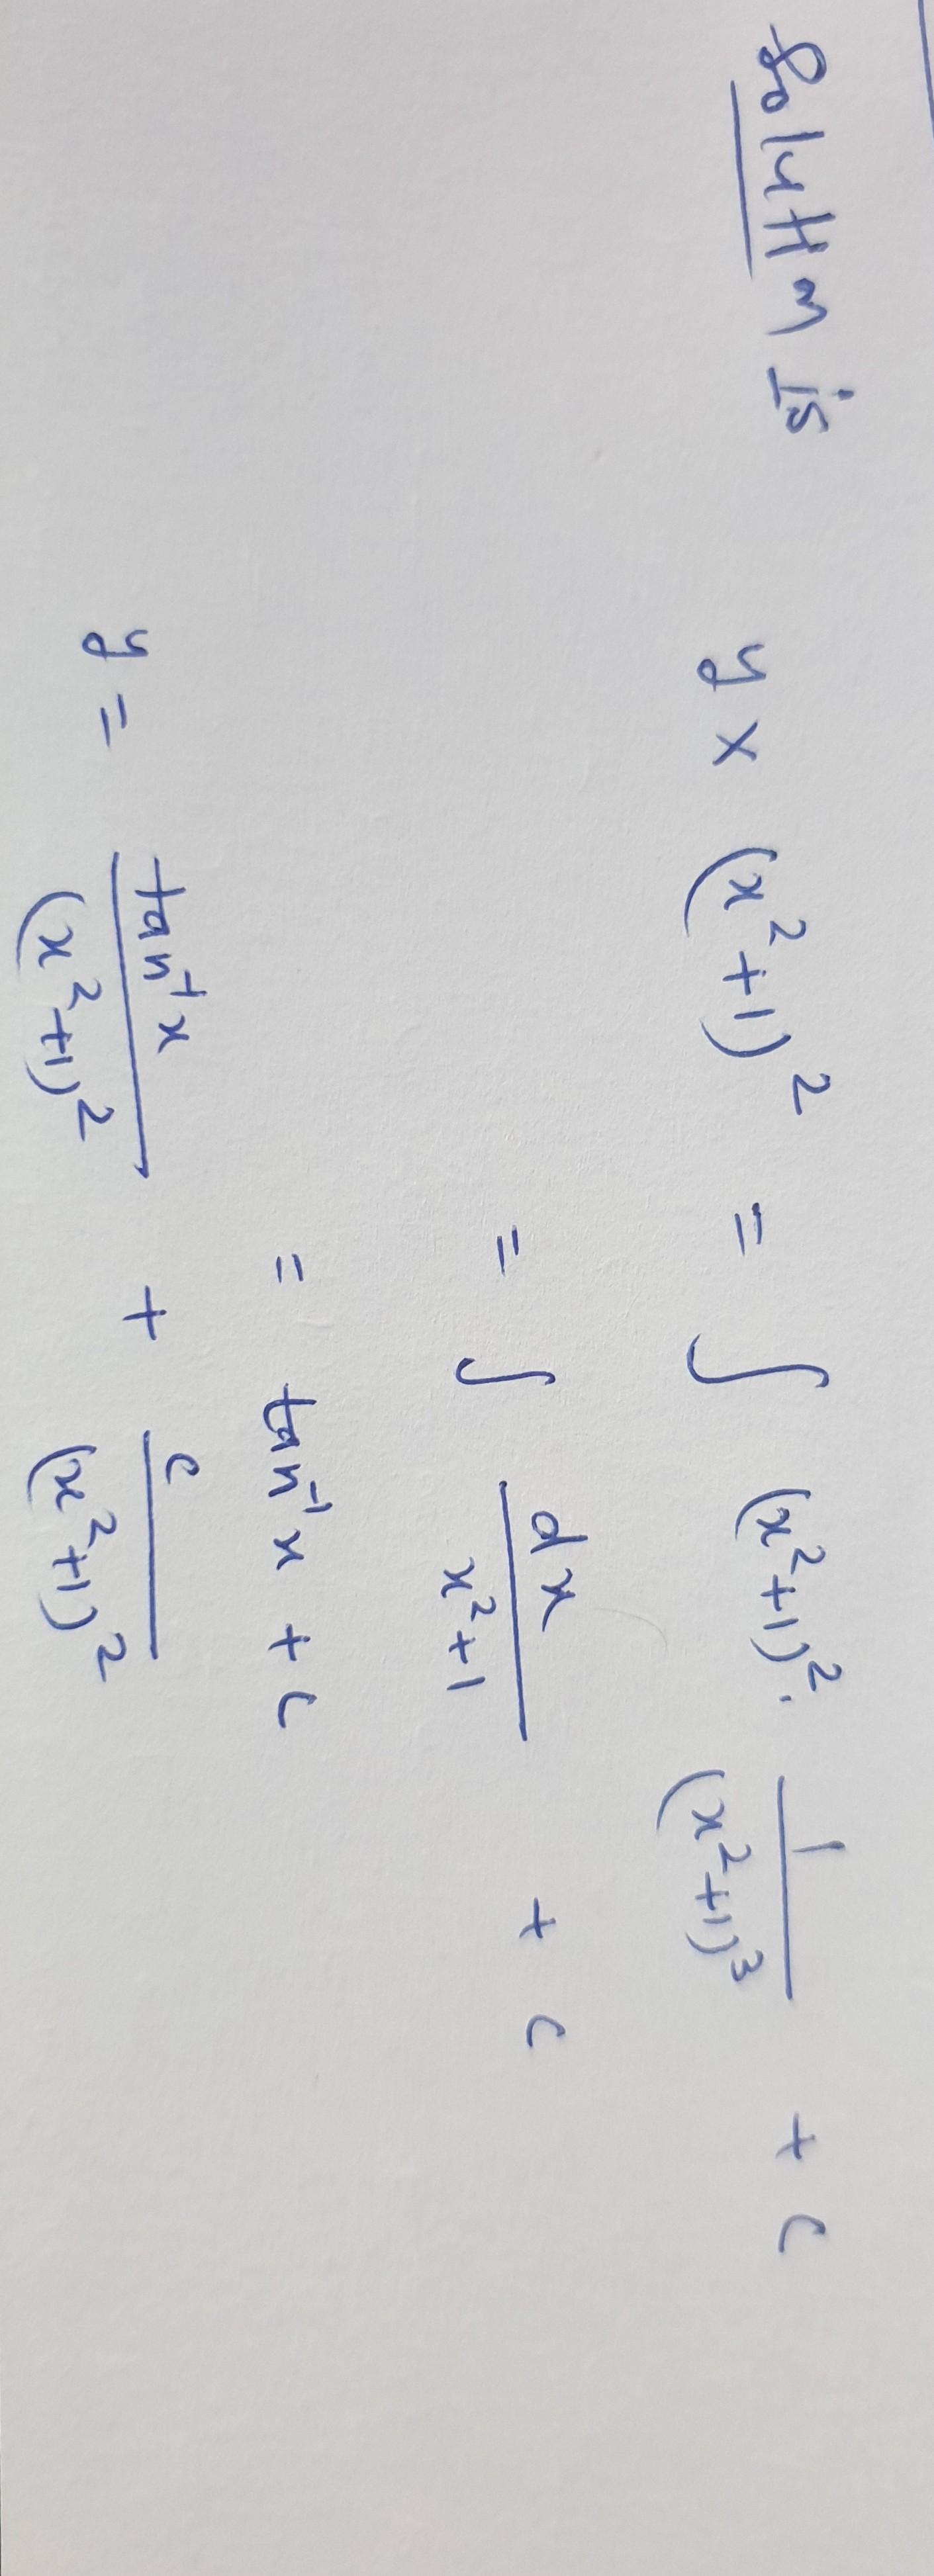 Solution is y × (x²+1)² = ∫ (x²+1)². 1/(x²+1)³ + c
= ∫ dx/(x²+1) + c
= tan⁻¹x + c
y = tan⁻¹x/(x²+1)² + c/(x²+1)²